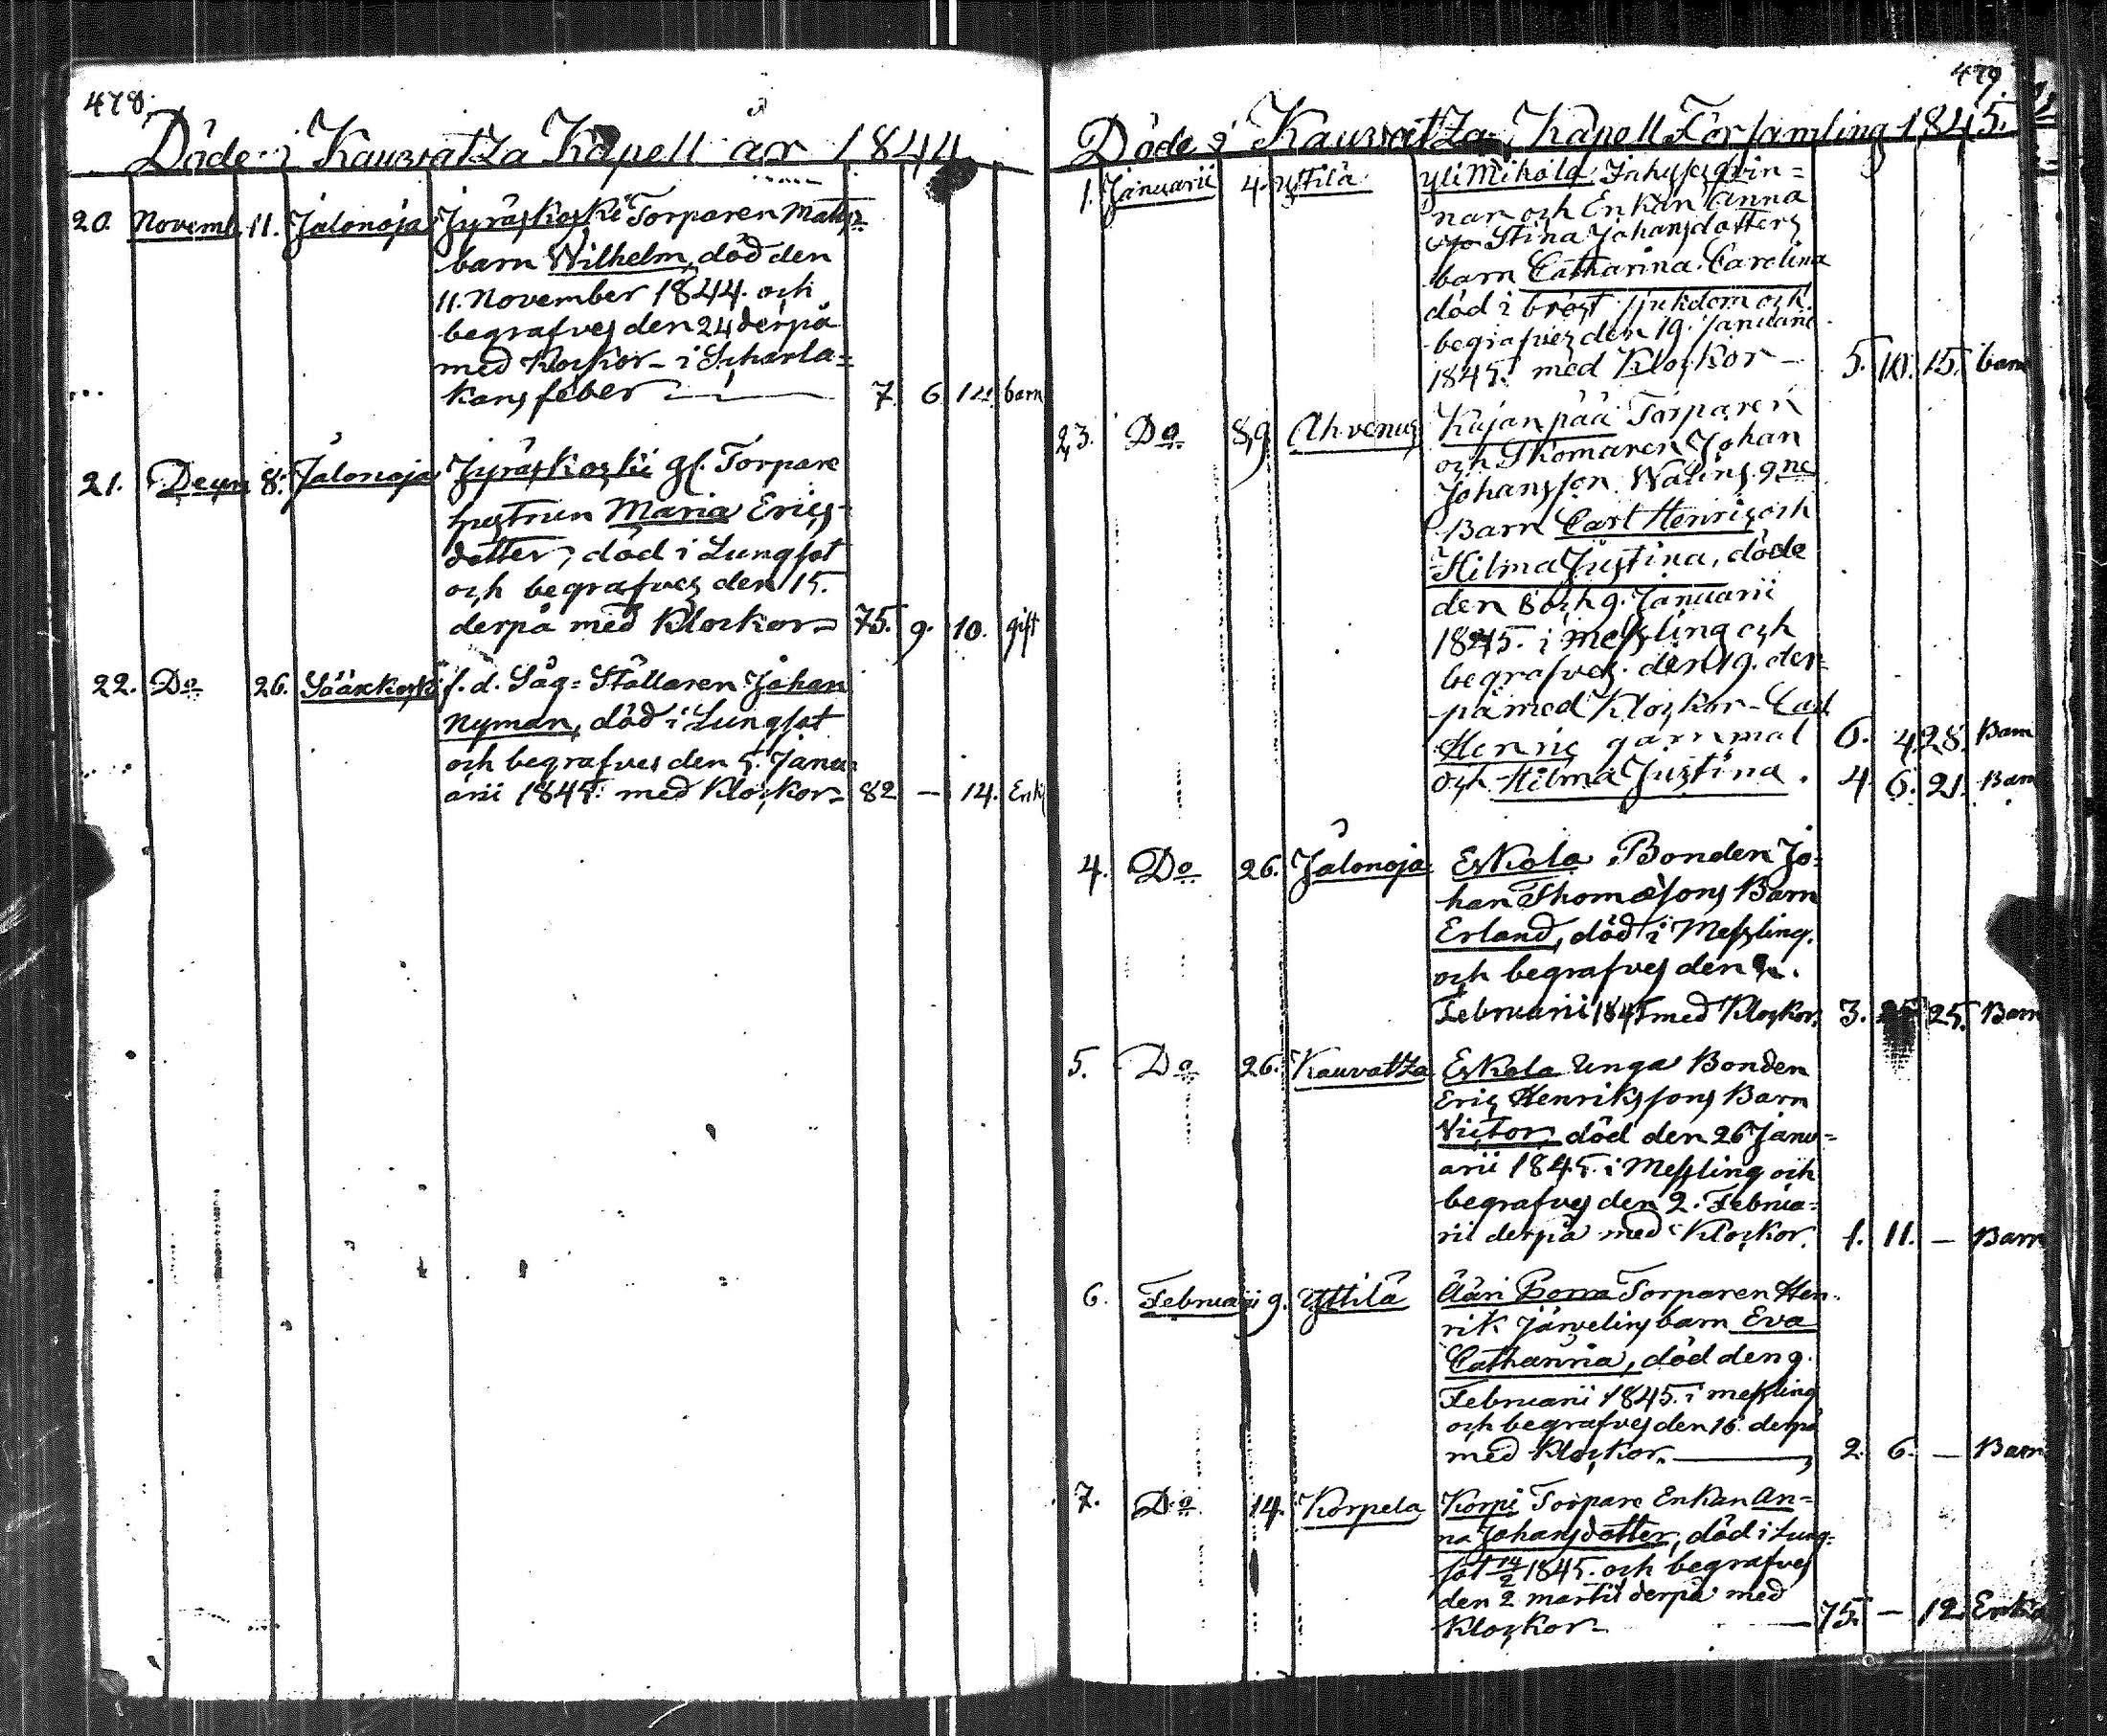 478.
Döde i Kauvatza Kapell år 1844
20. Novemb. 11. Jalonoja Jyräskoski Torparen Matts
barn Wilhelm, död den
11. November 1844. och
begrafves den 24 derpå
med Klockor - i Scharla=
kans feber 7. 6. 12. barn
21. Decem 8. Jalonoja Jyräskoski gl. Torpare
hustrun Maria Erics=
dotter, död i Lungsot
och begrafves den 15.
derpå med Klockor 75. 9. 10. gift
22. Do 26. Sääxkoski f. d. Såg=Ställaren Johan
Nyman, död i Lungsot
och begrafves den 5. Janu=
arii 1845. med Klockor 82 - 14. Enkl
479.
Döde i Kauvatza Kapell Församling 1845.
1. Januarii 4. Yttilä Yli Mikola Inhyseqvin=
nan och Enkan Anna
Stina Johansdotters
barn Catharina Carolina
död i bröst sjukdom och
begrafves den 19. Januarii
1845. med Klockor - 5. 10. 15. barn
2,3. Do 8,9. Ahvenus Kujanpää Torparen
och Skomaren Johan
Johansson Walins 2ne
Barn Carl Henric och
Hilma Justina, döde
den 8 och 9. Januarii
1845. i messling och
begrafves den 19. der=
på med Klockor - Carl
Henric gammal 6. 4. 28. Barn
och Hilma Justina. 4. 6. 21. Barn
4. Do 26. Jalonoja Eskola Bonden Jo=
han Thomæsons Barn
Erland, död i Messling.
och begrafves den 2.
Februarii 1845 med Klockor. 3. 25. Barn
5. Do 26. Kauvatza Eskola Unga Bonden
Eric Henrikssons Barn
Victor, död den 26 Janu=
arii 1845. i Messling och
begrafves den 2. Februa=
rii derpå med Klockor. 1. 11. - Barn
6. Februarii 9. Yttilä Ääri Torparen Hen=
rik Järvelins barn Eva
Catharina, död den 9.
Februarii 1845. i messling
och begrafves den 16. derpå
med Klockor. 2. 6. - Barn
7. Do 14. Korpela Korpi Torpare Enkan An=
na Johansdotter, död i Lung=
sot 14/2 1845. och begrafves
den 2 martii derpå med
Klockor 75. - 12. Enka